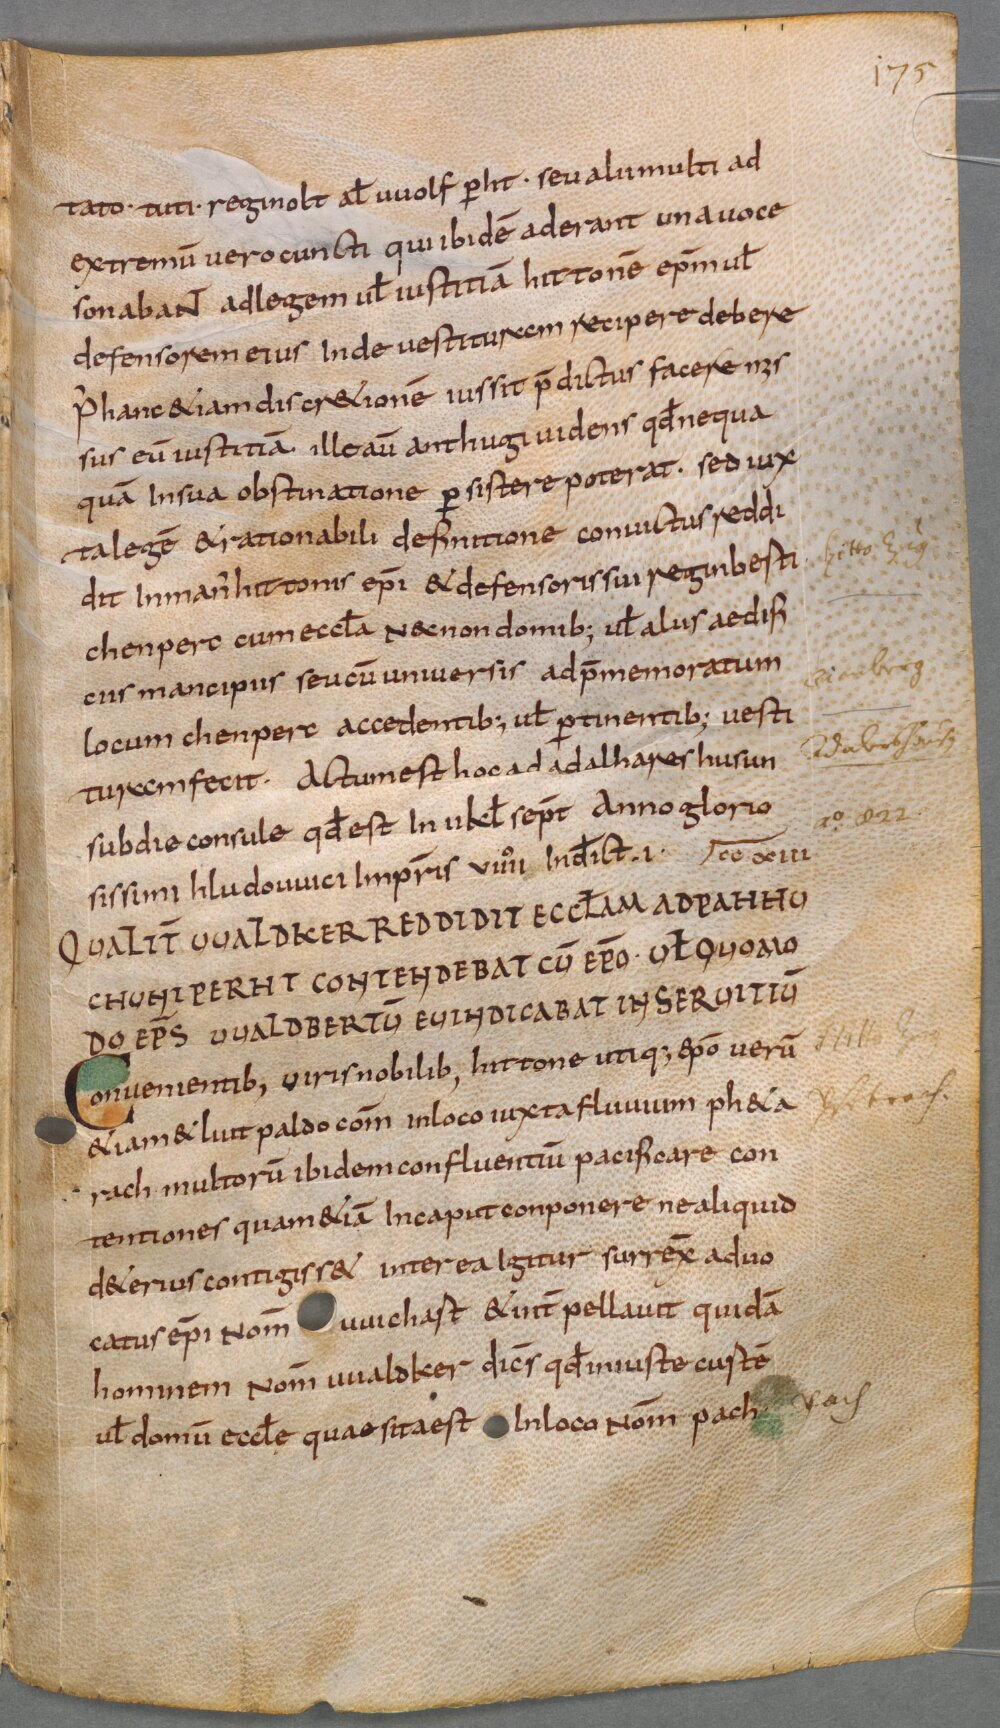 175
tato. tuti. reginolt al̄ uuolf p̱ht. seu alii multi ad
extremū uero cuncti qui ibidē aderant una uoce
sonabant ad legem ul̄ iustitiā hittonē ep̄m ul̄
defensorem eius inde uestituram recipere debere
P̄ hanc &iam discr&ionē iussit p̄dictus facere mis
sus eū iustitiā. ille aū anthugi uidens qd̄ nequa
quā in sua obstinatione p̱sistere poterat. sed iux
ta legē & rationabili definitione conuictus reddi
dit in man̄ hittonis ep̄i & defensoris sui reginbesti
hitto Ep̄s
chenperc cum eccl̄a necnon domib; ul̄ aliis aedifi
ciis mancipiis seu cū uniuersis ad p̄memoratum
locum chenperc accedentib; ul̄ p̱tinentib; uesti
turam fecit. Actum est hoc ad adalhareshusun
sub die consule qd̄ est in u kl̄ sept̄ Anno glorio
aº. 822.
sissimi hludouuici imp̄ris uiiii ind̄ict. i.
QUALIT̄ UUALDKER REDDIDIT ECCL̄AM AD PAHHU
CHUNIPERHT CONTENDEBAT CŪ EP̄O. UL̄ QUOMO
DO EP̄S UUALDBERTŪ EUINDICABAT IN SERUITIŪ
Conuenientib, uiris nobilib, hittone utiq; ep̄o uerū
&iam & liutpaldo com̄ in loco iuxta fluuium ph&a
rach multorū ibidem confluentiū pacificare con
tentiones quam &iā in caput conponere ne aliquid
d&erius contigiss& interea igitur surrex̄ aduo
catus ep̄i nom̄ uuichast & int̄pellauit quidā
hominem nom̄ uualdker dic̄s qd̄ iniuste custē
ul̄ domū eccl̄e quae sita est in loco nom̄ pach
Pach